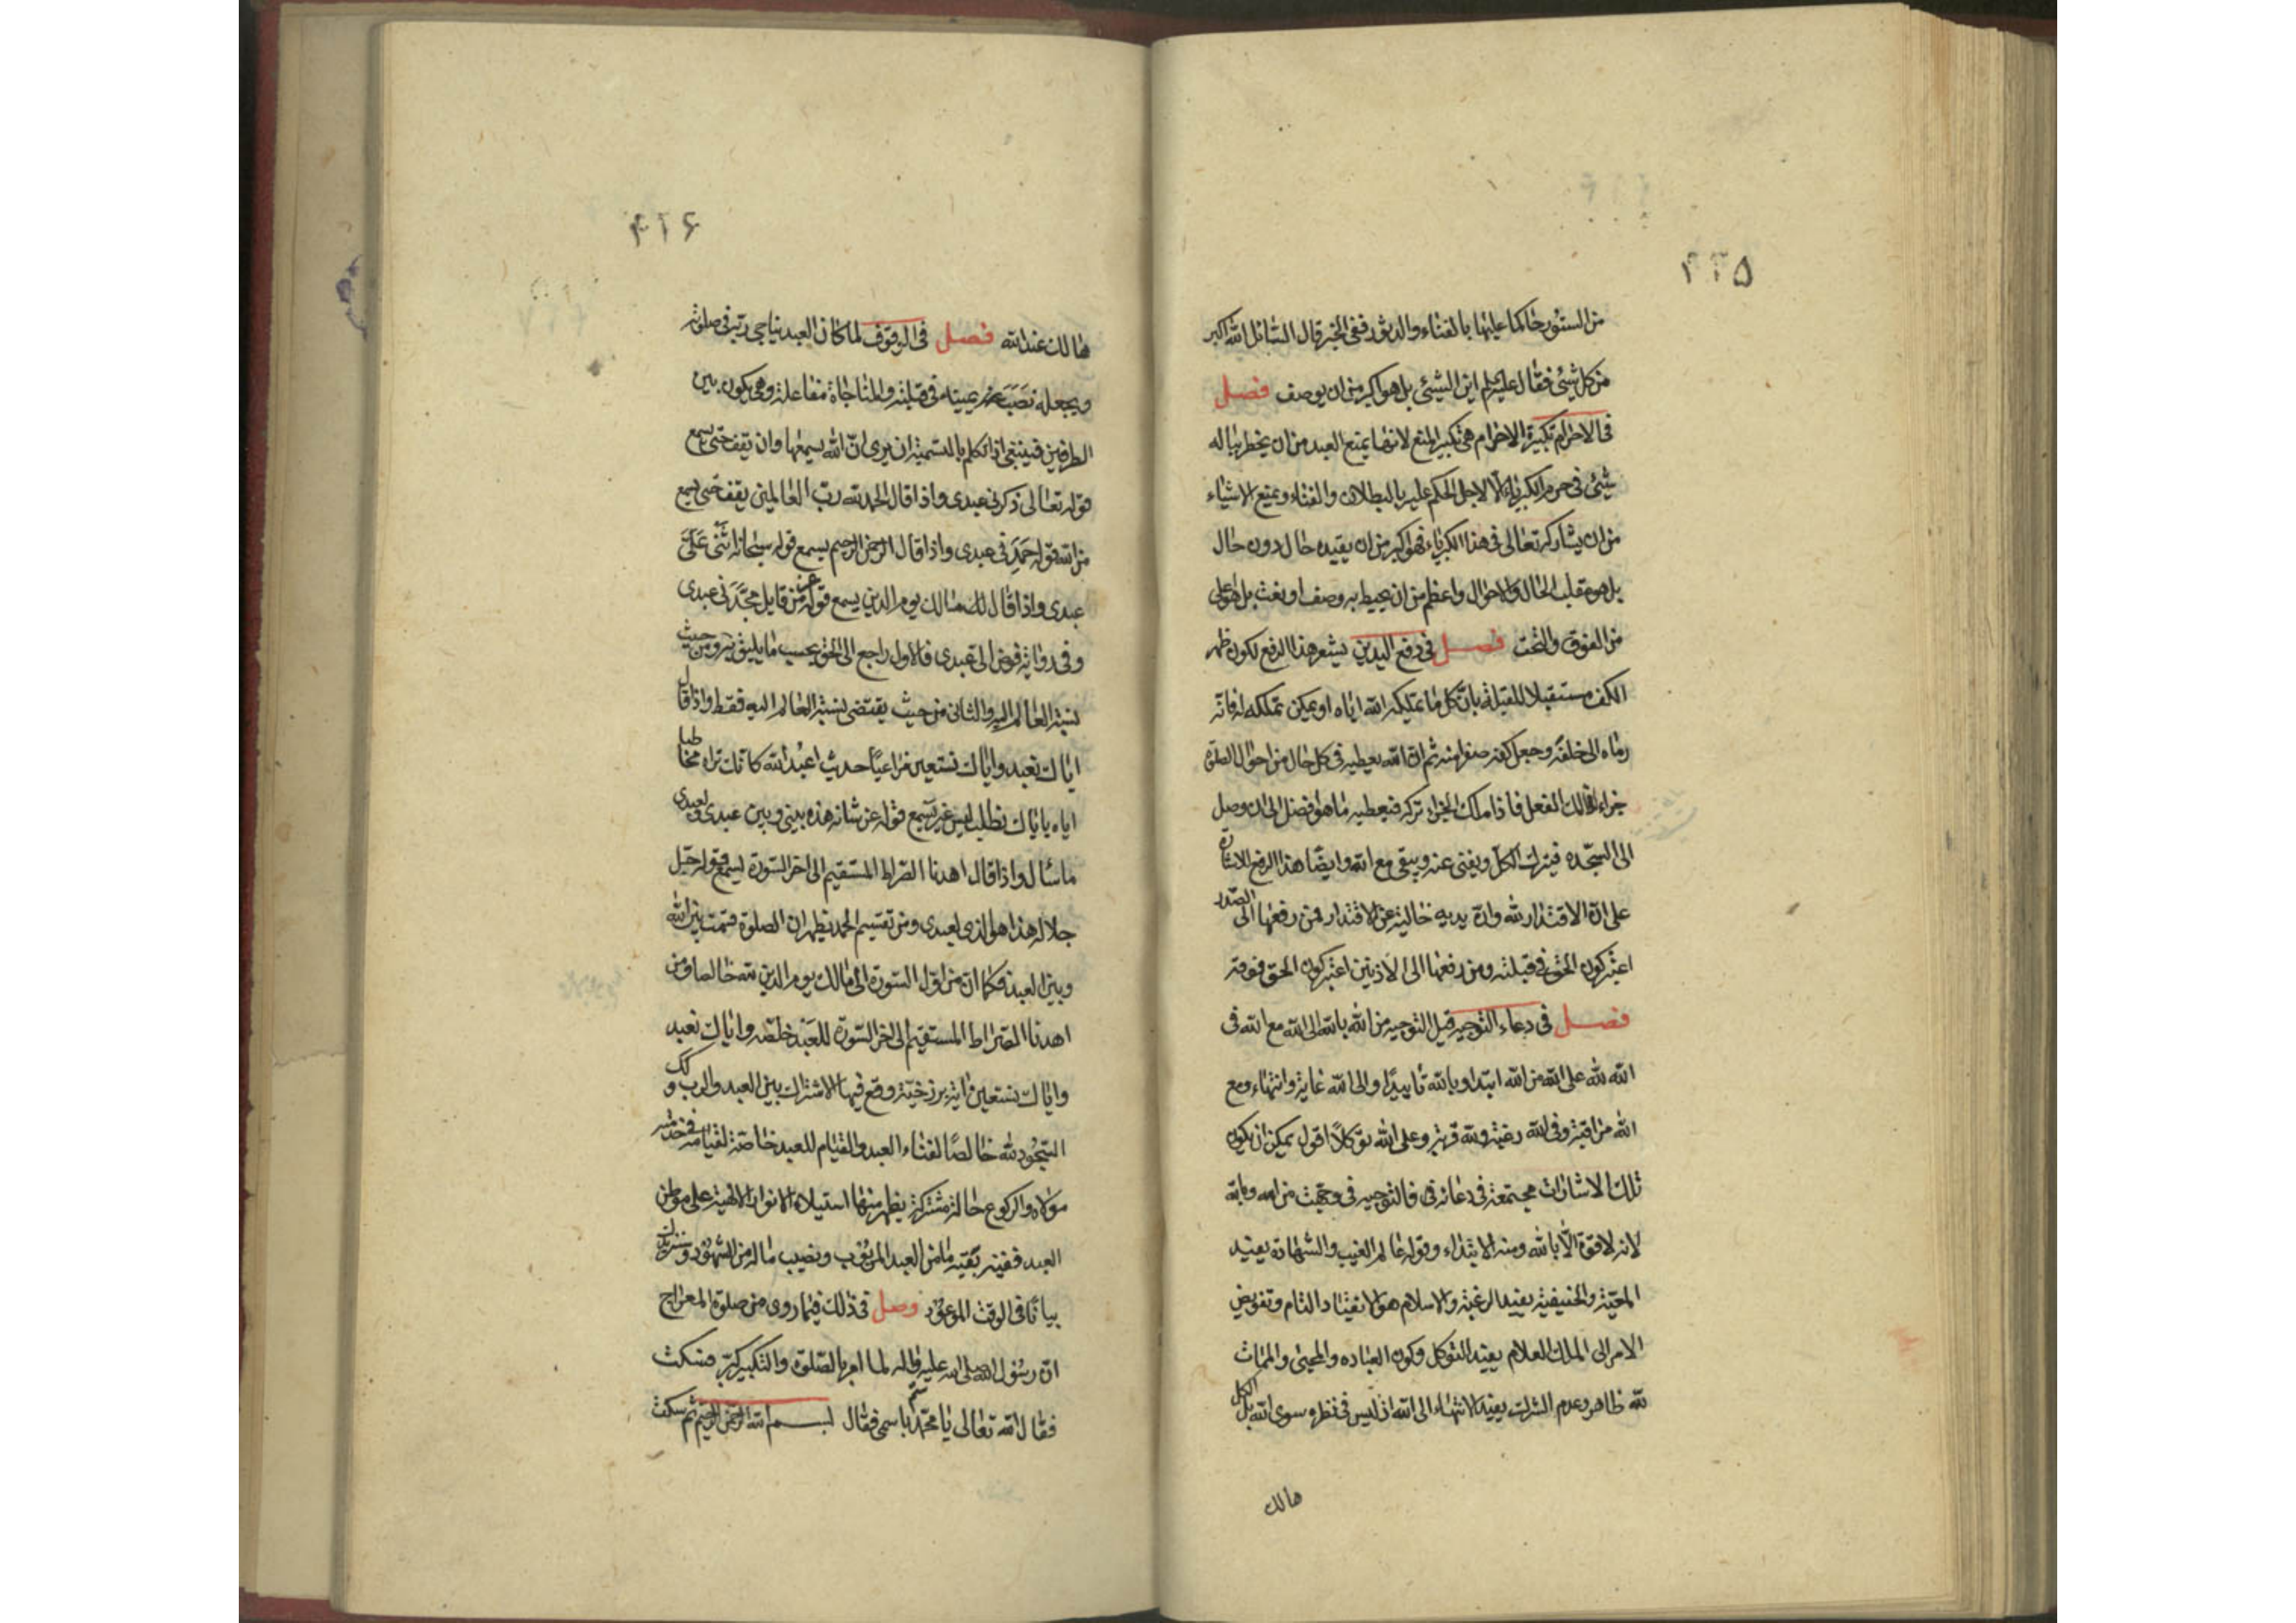 ۴۲۵
من الستور حاكما عليها بالفناء والدثور ففى الخبر قال السائل الله اكبر
من كل شيئ فقال عليه السلم اين الشيئ بل هو اكبر من ان يوصف فصل
فى الاحرام تكبيرة الاحرام هى تكبير المنع لانها يمنع العبد من ان يخطر بباله
شيئ فى حرم الكبرياء الا لاجل الحكم عليه بالبطلان والفناء ويمنع الاشياء
من ان يشاركه تعالى فى هذا الكبرياء فهو اكبر من ان يقيده حال دون حال
بل هو مقلب الحال والاحوال واعظم من ان يحيط به وصف او نعت بل هو اعلى
من الفوق والتحت فصل فى رفع اليدين يشعر هذا الرفع لكون ظهر
الكف مستقبلا للقبلة بان كل ما تملكه الله اياه او يمكن تملكه له فانه
رماه الى خلفه وجعل كفه صفرا منه ثم ان الله يعطيه فى كل حال من احوال الصلوة
جزاء لذلك الفعل فاذا ملك الجزاء تركه فيعطيه ما هو افضل الى ان وصل
الى السجده فيترك الكل ويفنى عنه ويبقى مع الله وايضا هذا الرفع لاشارة
على ان الاقتدار لله وان يديه خالية عن الاقتدار فمن رفعها الى الصدر
اعتبر كون الحق فى قبلته ومن رفعها الى الاذنين اعتبر كون الحق فوقه
فصل فى دعاء التوجيه قيل التوجيه من الله بالله الى الله مع الله فى
الله لله على الله من الله ابتدا وبالله تاييدا والى الله غاية وانتهاء ومع
الله مراقبة وفى الله رغبة ولله قربة وعلى الله توكلا اقول يمكن ان يكون
تلك الاشارات مجتمعة فى دعائه فى فالتوجيه فى وجهت من الله وبالله
لانه لا قوة الا بالله ومنه الابتداء وقوله عالم الغيب والشهادة يفيد
المعية والحنيفية يفيد الرغبة والاسلام هو الانقياد التام وتفويض
الامر الى الملك العلام يفيد التوكل وكون العباده والمحيى والممات
لله ظاهر وعدم الشرك يفيد الانتهاء الى الله اذ ليس فى نظره سوى الله بل الكل
هالك
۴۲۶
هالك عند الله فصل فى الوقوف لما كان العبد يناجى ربه فى صلوته
ويجعله نصب عينيه فى قبلته والمناجاة مفاعلة وهى يكون بين
الطرفين فينبغى اذا تكلم بالتسمية ان يرى ان الله يسمعها وان يقف حتى يسمع
قوله تعالى ذكرنى عبدى واذا قال الحمد لله رب العالمين يقف حتى يسمع
من الله قوله حمدنى عبدى واذا قال الرحمن الرحيم يسمع قوله سبحانه اثنى على
عبدى واذا قال مالك يوم الدين يسمع قوله عز من قايل مجدنى عبدى
وفى رواية فوض الى عبدى فالاول راجع الى الحق بحسب ما يليق به ومن حيث
نسبة العالم اليه والثانى من حيث يقتضى نسبة العالم اليه فقط واذا قال
اياك نعبد واياك نستعين مراعيا حديث اعبد الله كانك تراه مخاطبا
اياه باياك يسمع قوله عز شانه هذه بينى وبين عبدى ولعبدى
ما سئال واذا قال اهدنا الصراط المستقيم الى اخر السورة ليسمع قوله جل
جلاله هذا هو الذى لعبدى ومن تقسيم الحمد يظهر ان الصلوة قسمت بين الله
وبين العبد فكما ان من اول السورة الى مالك يوم الدين لله خالصا ومن
اهدنا الصراط المستقيم الى اخر السورة للعبد خاصه واياك نعبد
واياك نستعين اية برزخية وقع فيها الاشتراك بين العبد والرب كك و
السجود لله خالصا لفناء العبد والقيام للعبد خاصة لقيامه فى خدمة
مولاه والركوع حالة مشتركة يظهر منها استيلاء الانوار الالهية على موطن
العبد ففيه بقية ما من العبد المربوب ونصيب ما له من الشهود وسنزيدك
بيانا فى الوقت الموعود وصل فى ذلك فيما روى من صلوة المعراج
ان رسول الله صلى الله عليه واله لما امر بالصلوة والتكبير كبر فسكت
فقال الله تعالى يا محمد سم باسمى فقال بسم الله الرحمن الرحيم ثم سكت